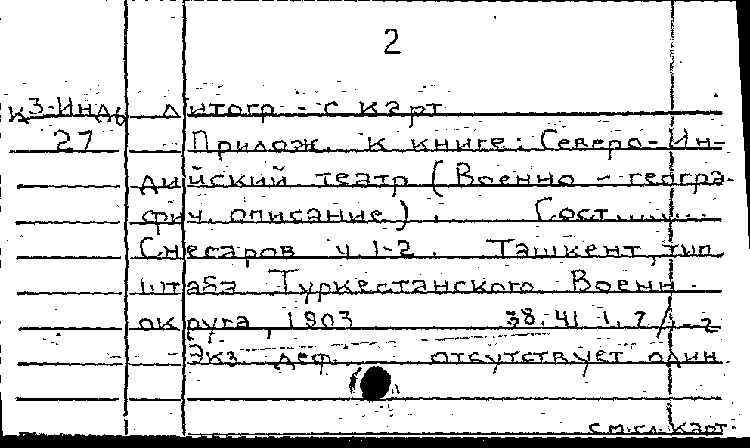 2
К 3-Инд6 Литогр. с карт
27 Прилож. к книге: Северо-Ин-
дийский театр (Военно-геогра-
фич. описание). Сост........
Снесарев ч.1-2. Ташкент, тип.
штаба Туркестанского Воен.
округа, 1903 38.41.1.7/1-2
Экз. деф. отсутствует один
см.сл.карт.